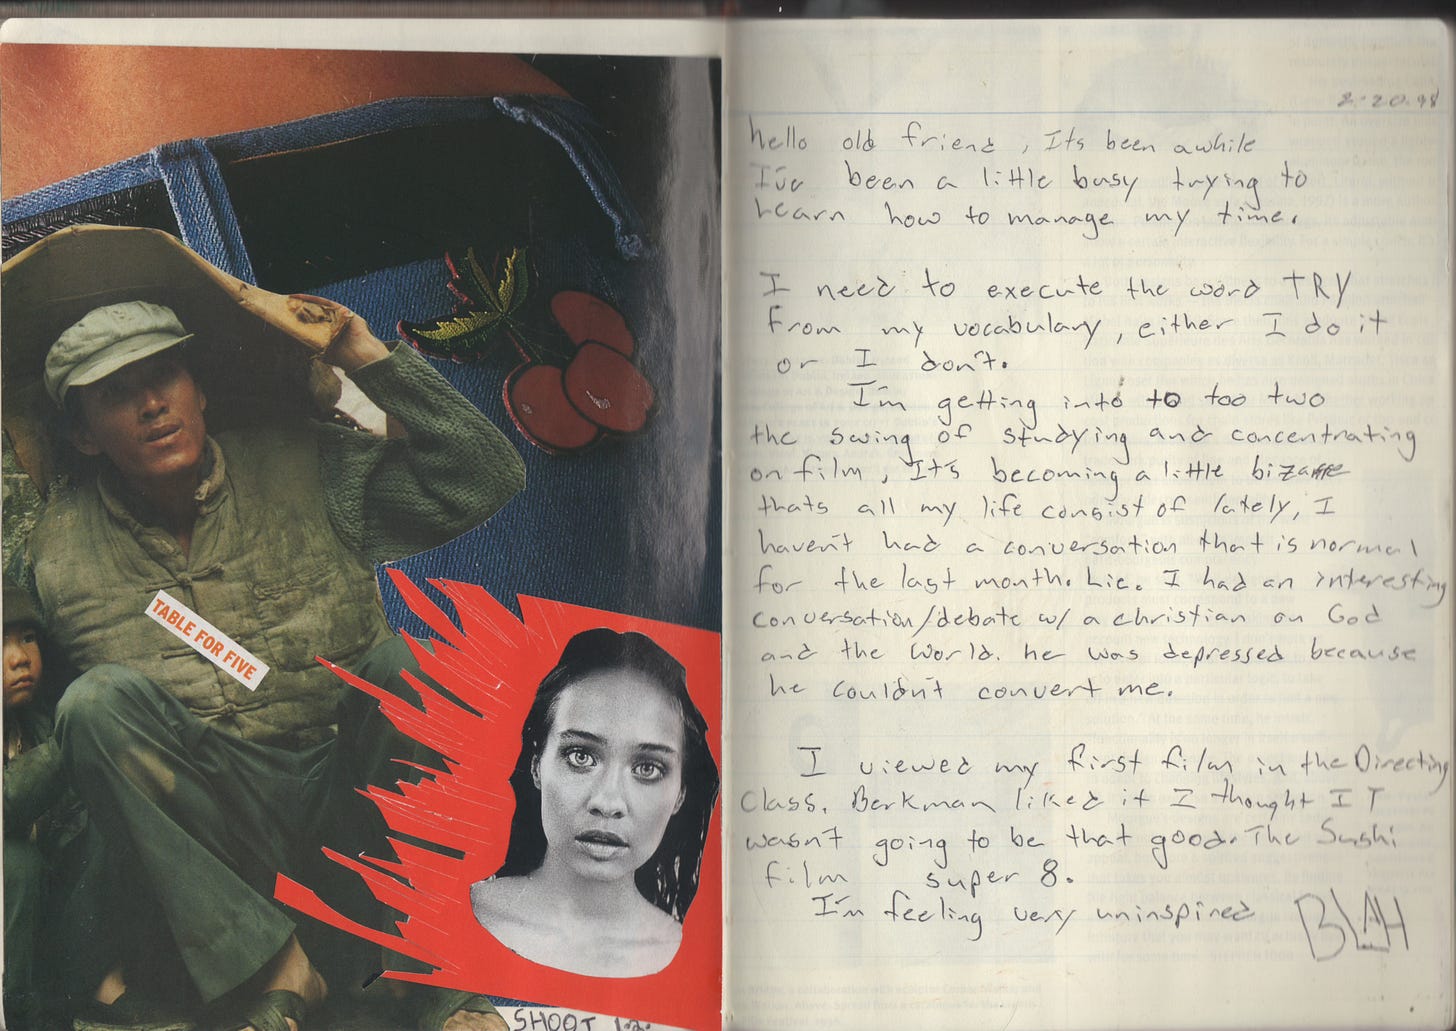 TABLE FOR FIVE
SHOOT
2-20.98
hello old friend, Its been awhile
I've been a little busy trying to
Learn how to manage my time.
I need to execute the word TRY
from my vocabulary, either I do it
or I don't.
I'm getting into to too two
the swing of studying and concentrating
on film, It's becoming a little bizarre
thats all my life consist of lately, I
haven't had a conversation that is normal
for the last month. Lie. I had an interesting
conversation/debate w/ a christian on God
and the world. he was depressed because
he couldn't convert me.
I viewed my first film in the Directing
Class. Berkman liked it I thought IT
wasn't going to be that good. The Sushi
film super 8.
I'm feeling very uninspired BLAH